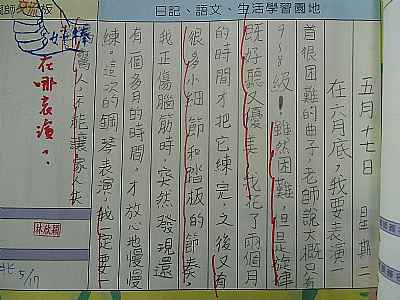 日記、語文、生活學習園地
五月十七日 星期二
在六月底,我要表演一
首很困難的曲子,老師說大概只有
7~8級!雖然困難,但是旋律
既好聽又優美,我花了兩個月
的時間才把它練完,之後又有
很多小細節和踏板的節奏,
我正傷腦筋時,突然發現還
有一個多月的時間,才放心地慢慢
練,這次的鋼琴表演,我一定要一
驚人,不能讓家人失
好棒
在哪表演?
5/17